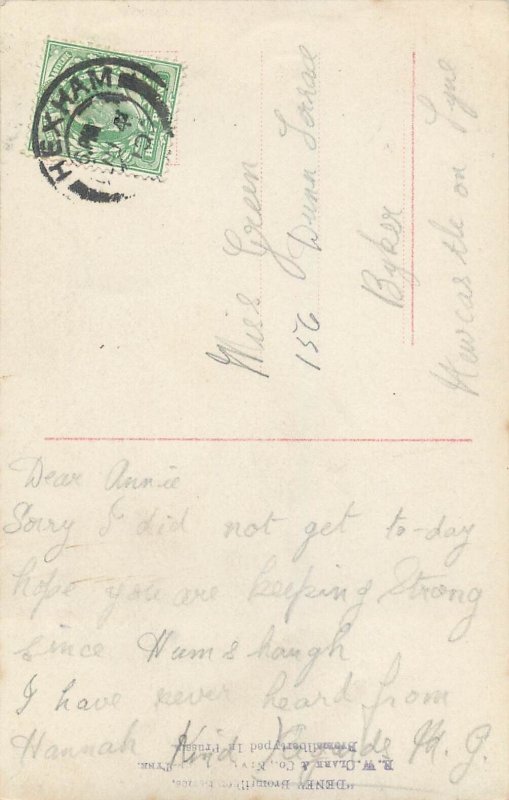 HEXHAM
Miss Green
156 Dunn Terrace
Byker
Newcastle on Tyne
Dear Annie
Sorry I did not get to-day
hope you are keeping Strong
since Humshaugh
I have never heard from
Hannah Kind Regards M. G.
E. W. CLARK & Co.,
Bromilibertyped In Prussia
"DENE"